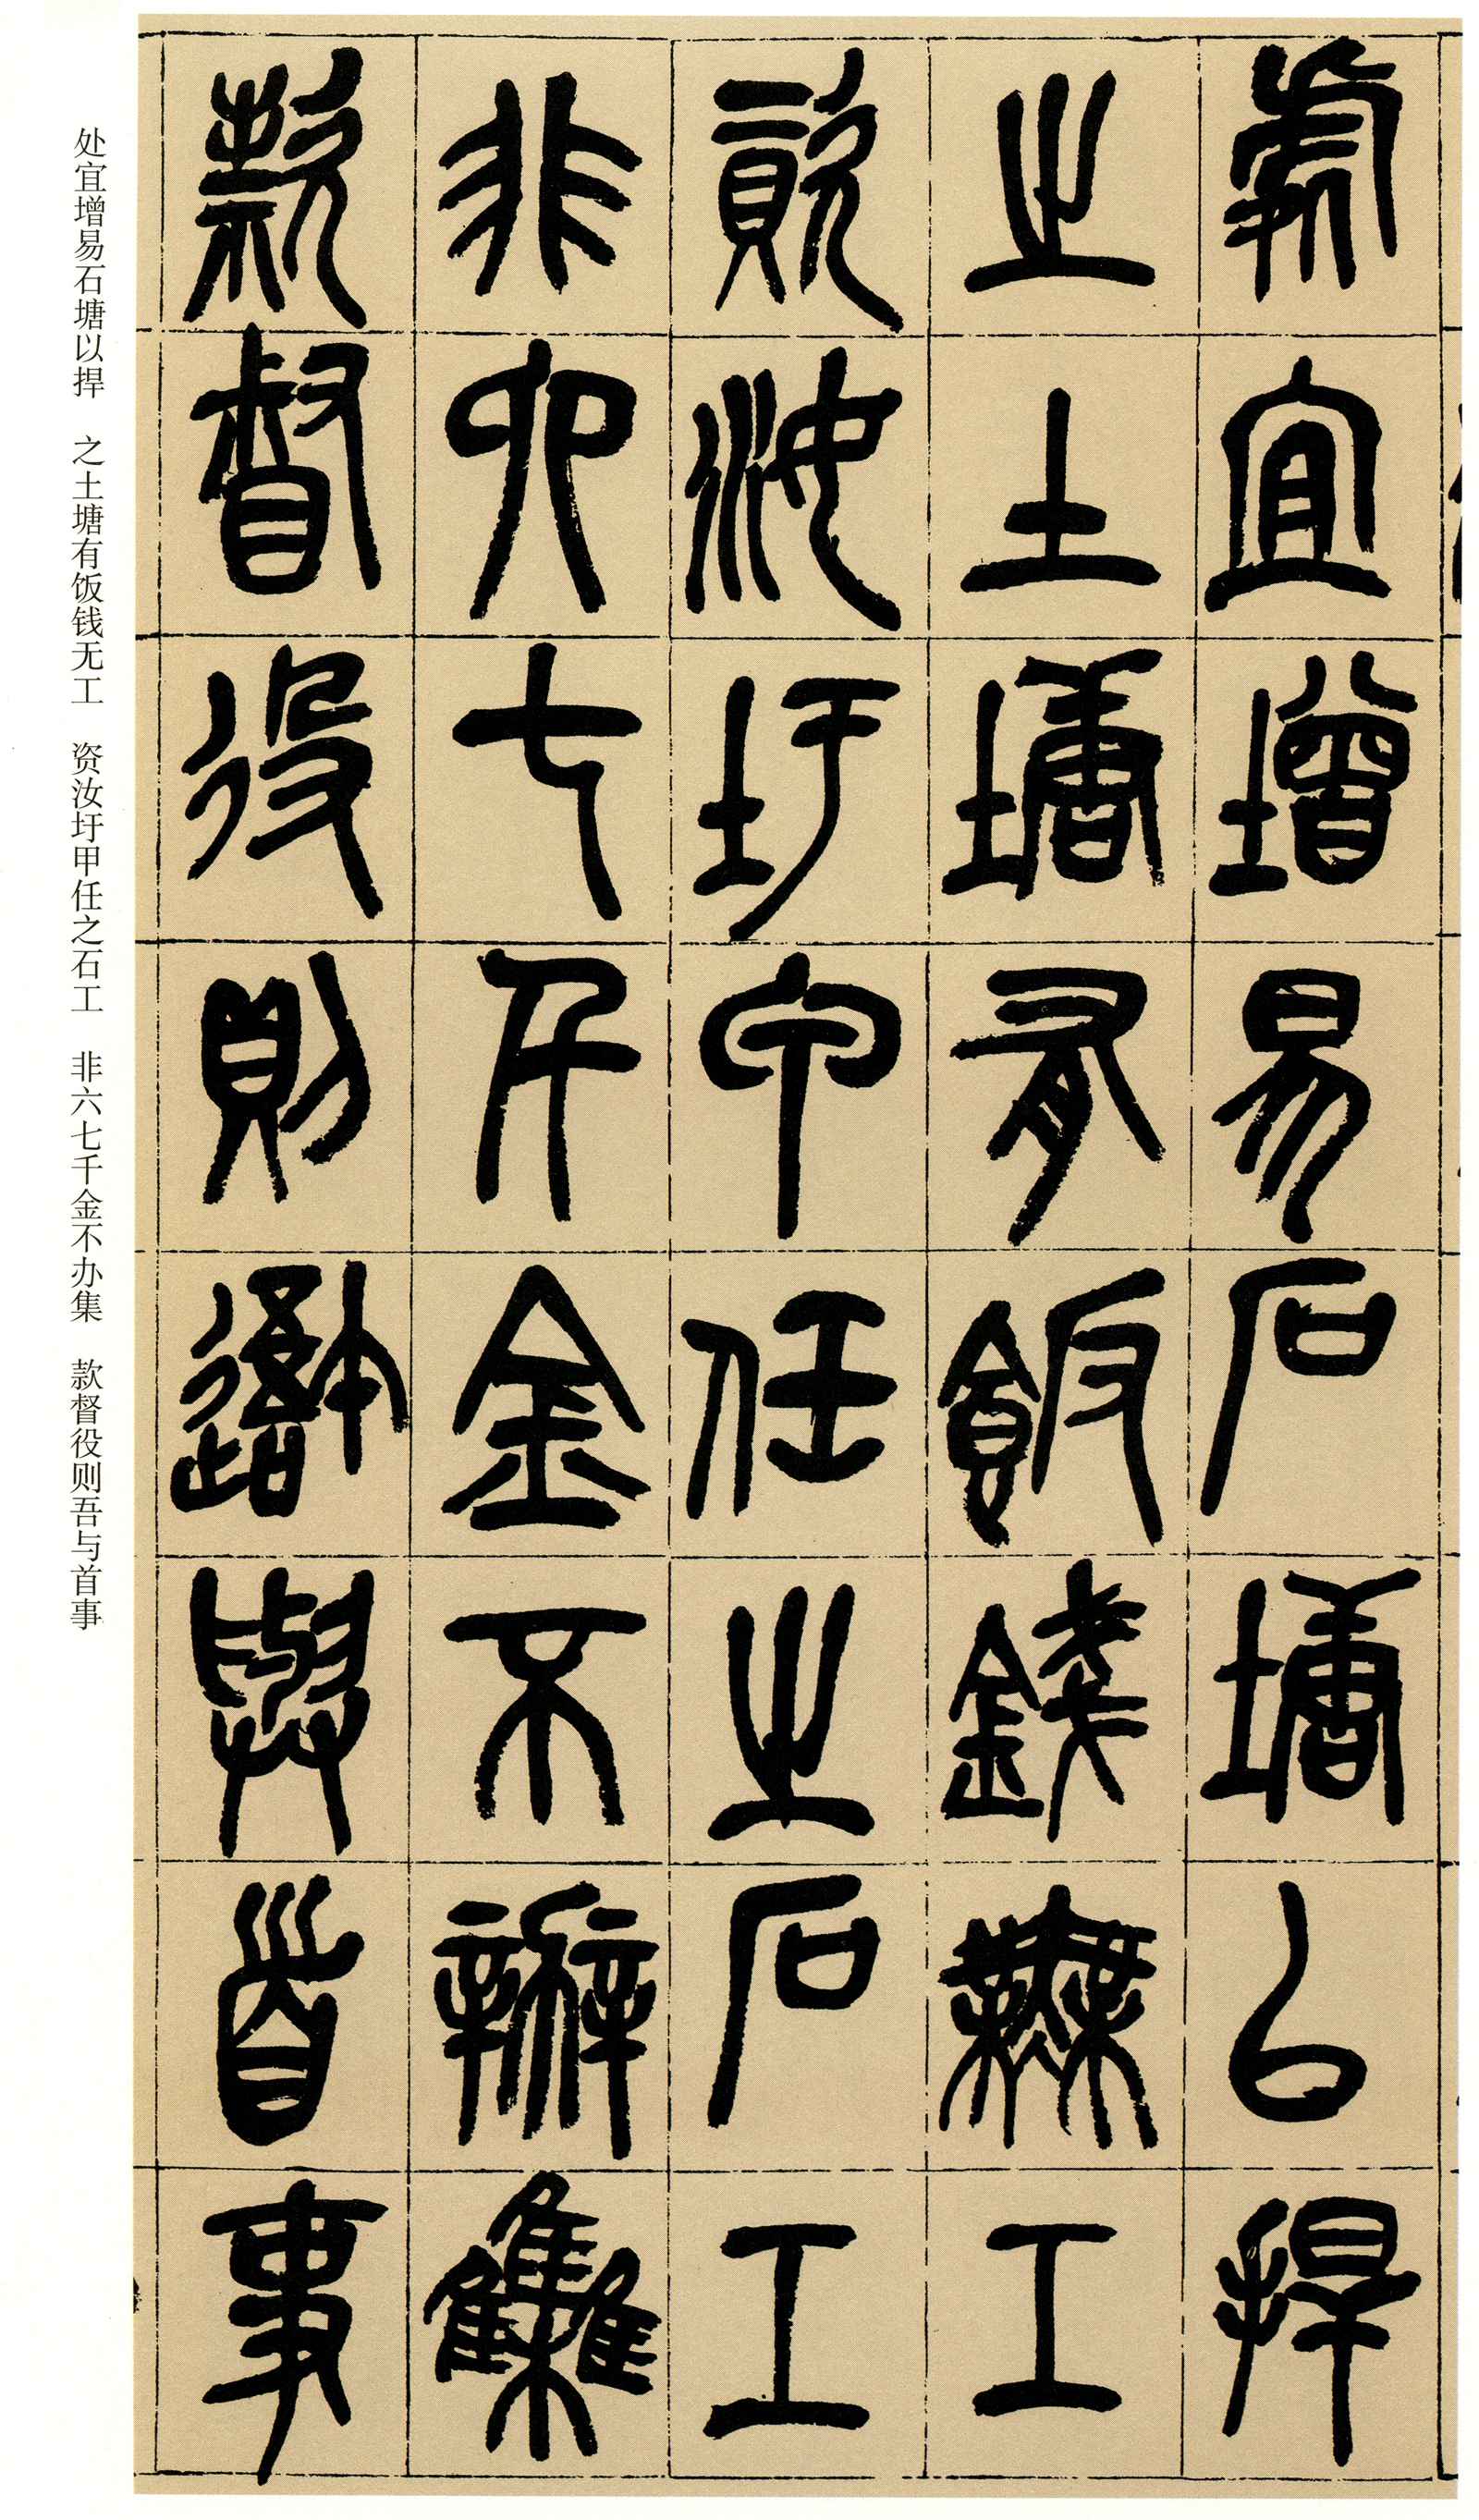 處宜增易石塘以捍
之土塘有飯錢無工
資汝圩甲任之石工
非六七千金不辦集
款督役則吾與首事
处宜增易石塘以捍 之土塘有饭钱无工 资汝圩甲任之石工 非六七千金不办集 款督役则吾与首事